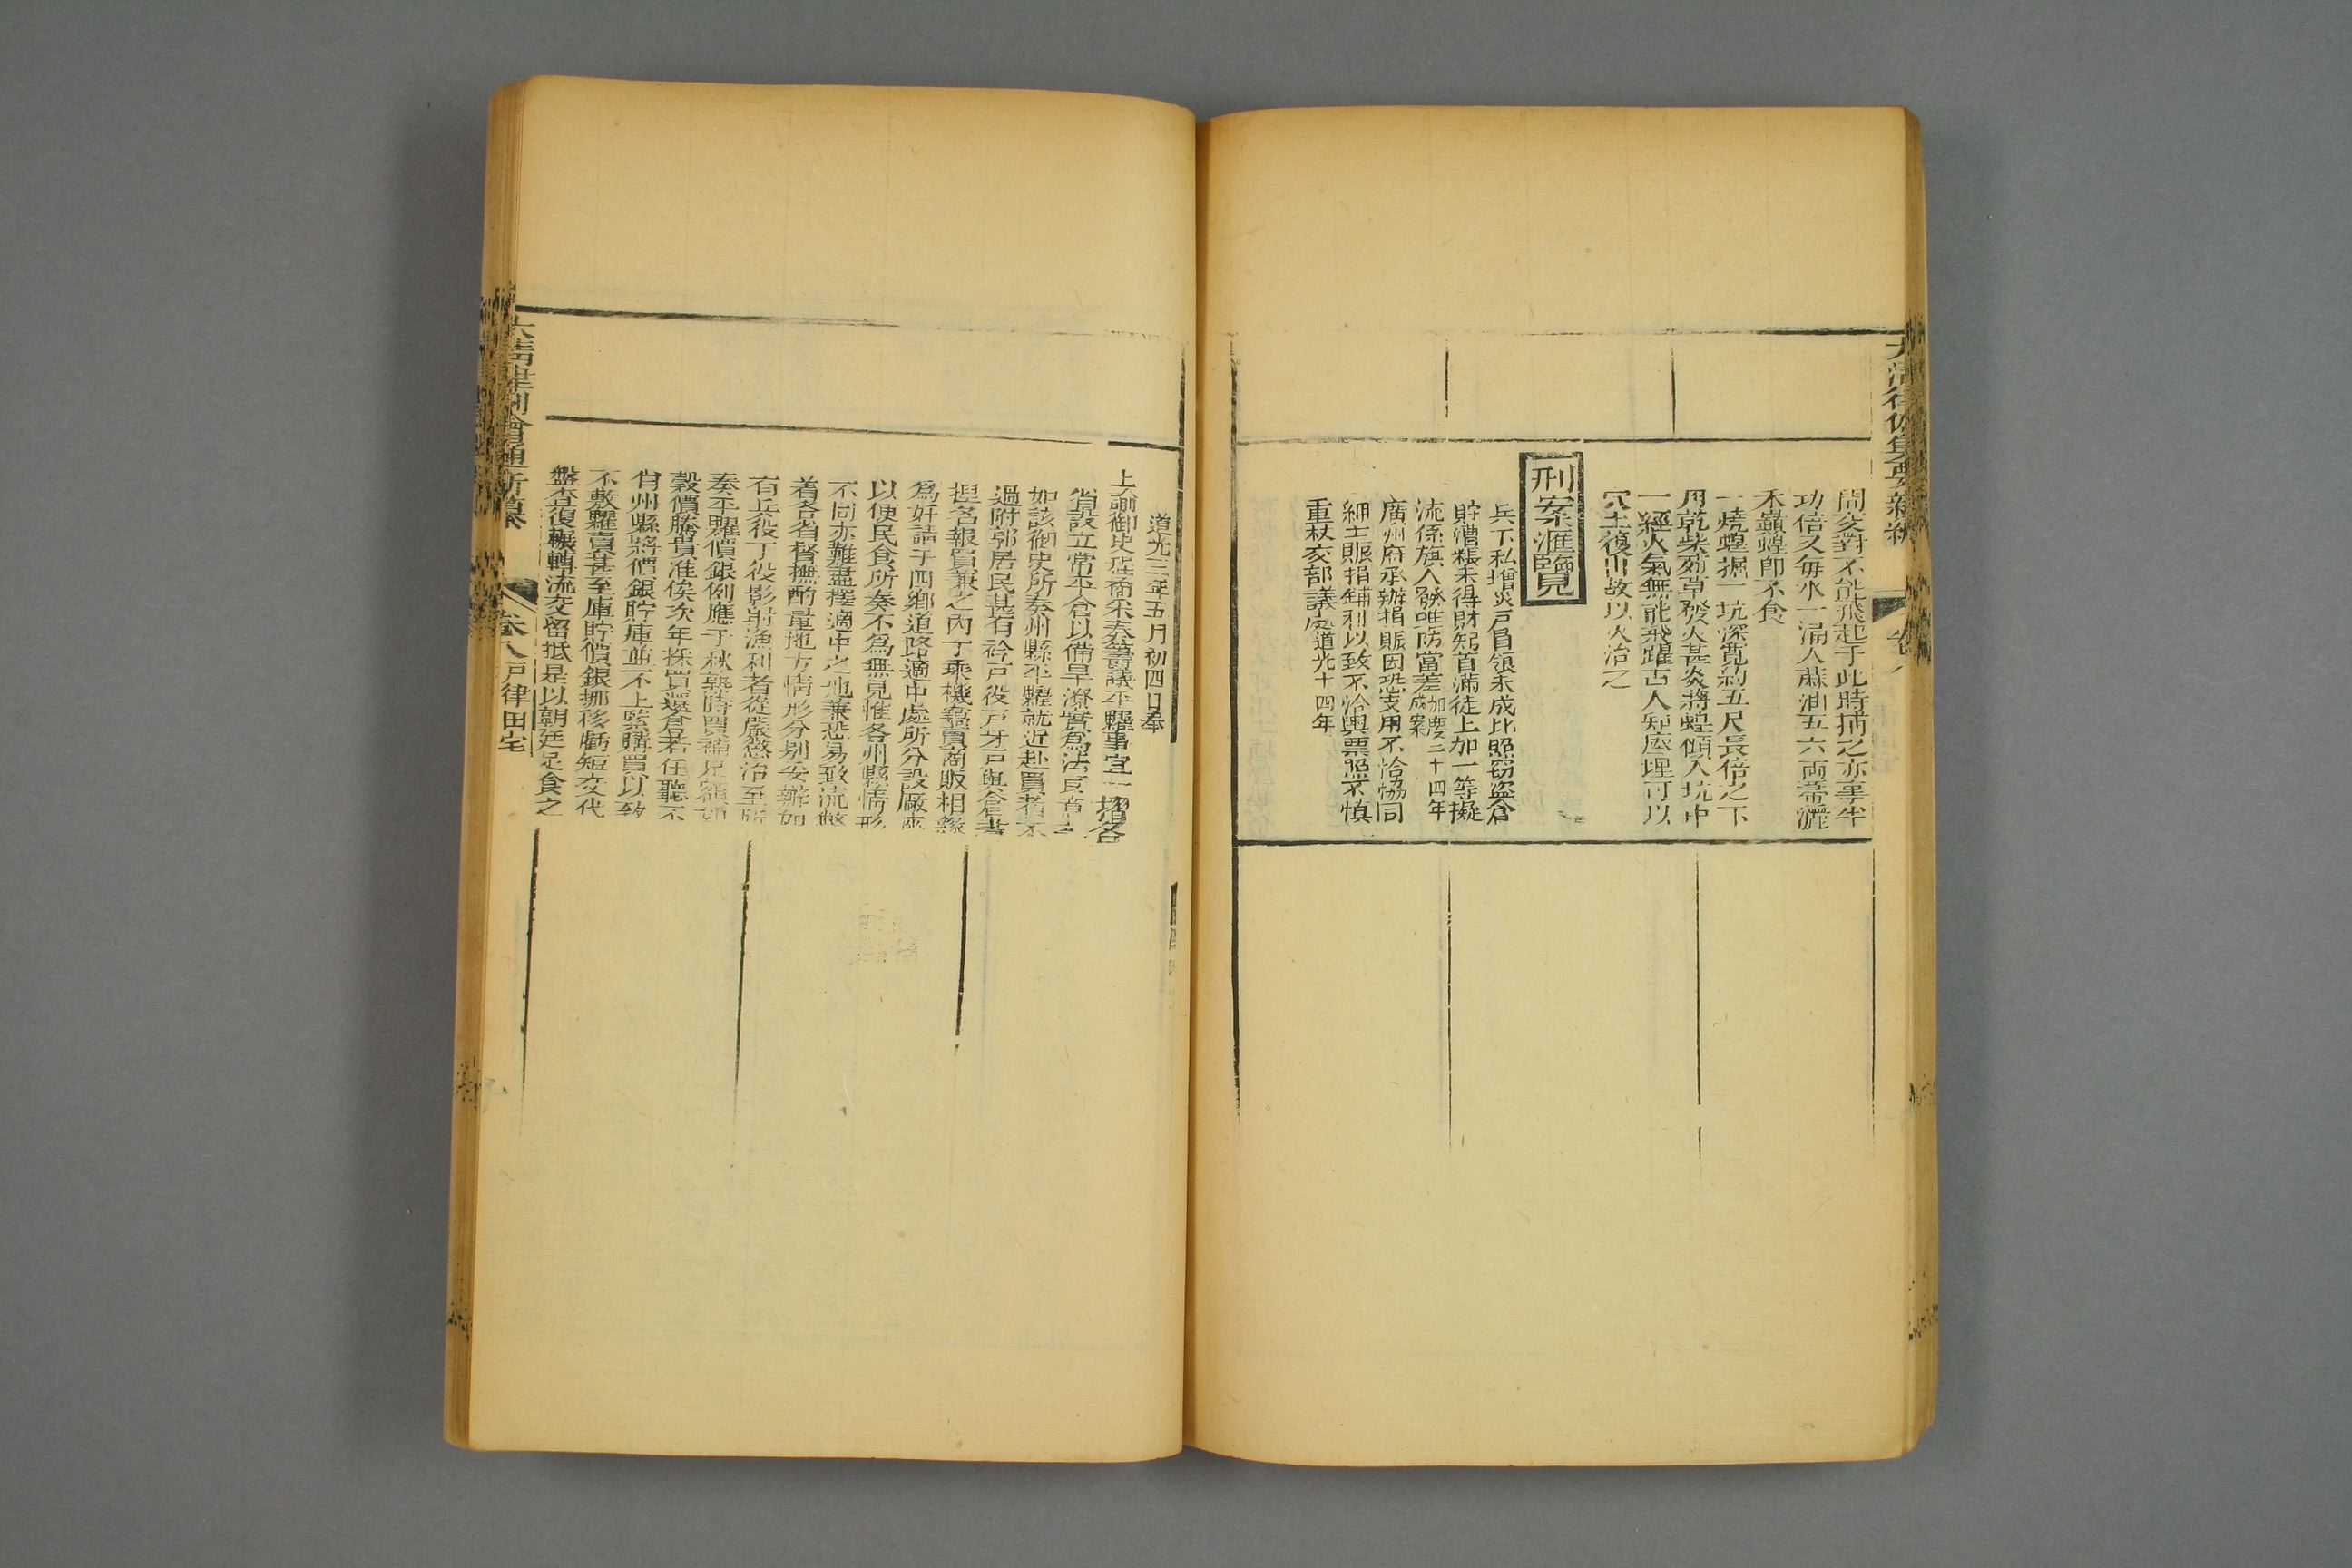 間交對不能飛起于此時捕之亦事半
功倍又每水一桶入蔴油五六両帚灑
禾巔蝗卽不食
一燒蝗掘一坑深寬約五尺長倍之下
用乾柴茆草發火甚炎將蝗傾入坑中
一經火氣無能飛躍古人知瘞埋可以
穴土復出故以火治之
刑案滙覽
兵下私增炎戸冒領未成比照窃盗倉
貯漕粮未得財爲首滿徒上加一等擬
流係旗人發唯防當差加慶二十四年
成案
廣州府承辦捐賑因恐支用不恰協同
紳士賬捐鋪利以致不洽輿票照不慎
重杖交部議處道光十四年
卷八
道光三年五月初四日奉
上諭御史程矞采奏籌議平糶事宜一摺各
省設立常平倉以備旱潦實爲法良意
如該御史所奏州縣平糶就近赴買者不
過附郭居民甚有衿戸役戸牙戸與倉書
捏名報買兼之內丁乘機蠧買商販相緣
爲奸請于四鄉道路適中處所分設廠座
以便民食所奏不爲無見惟各州縣情形
不同亦難盡擇適中之地兼恐易致流弊
着各省督撫酌量地方情形分別妥辦如
有兵役丁役影射漁利者從嚴懲治至所
奏平糶價銀例應于秋熟時買補足額如
穀價騰貴准俟次年採買還倉若任聽不
肖州縣將價銀貯庫並不上緊購買以致
不敷糶賣甚至庫貯價銀挪移虧短交代
盤查復輾轉流交留抵是以朝廷足食之
大清律例會通新纂
卷八戸律田宅